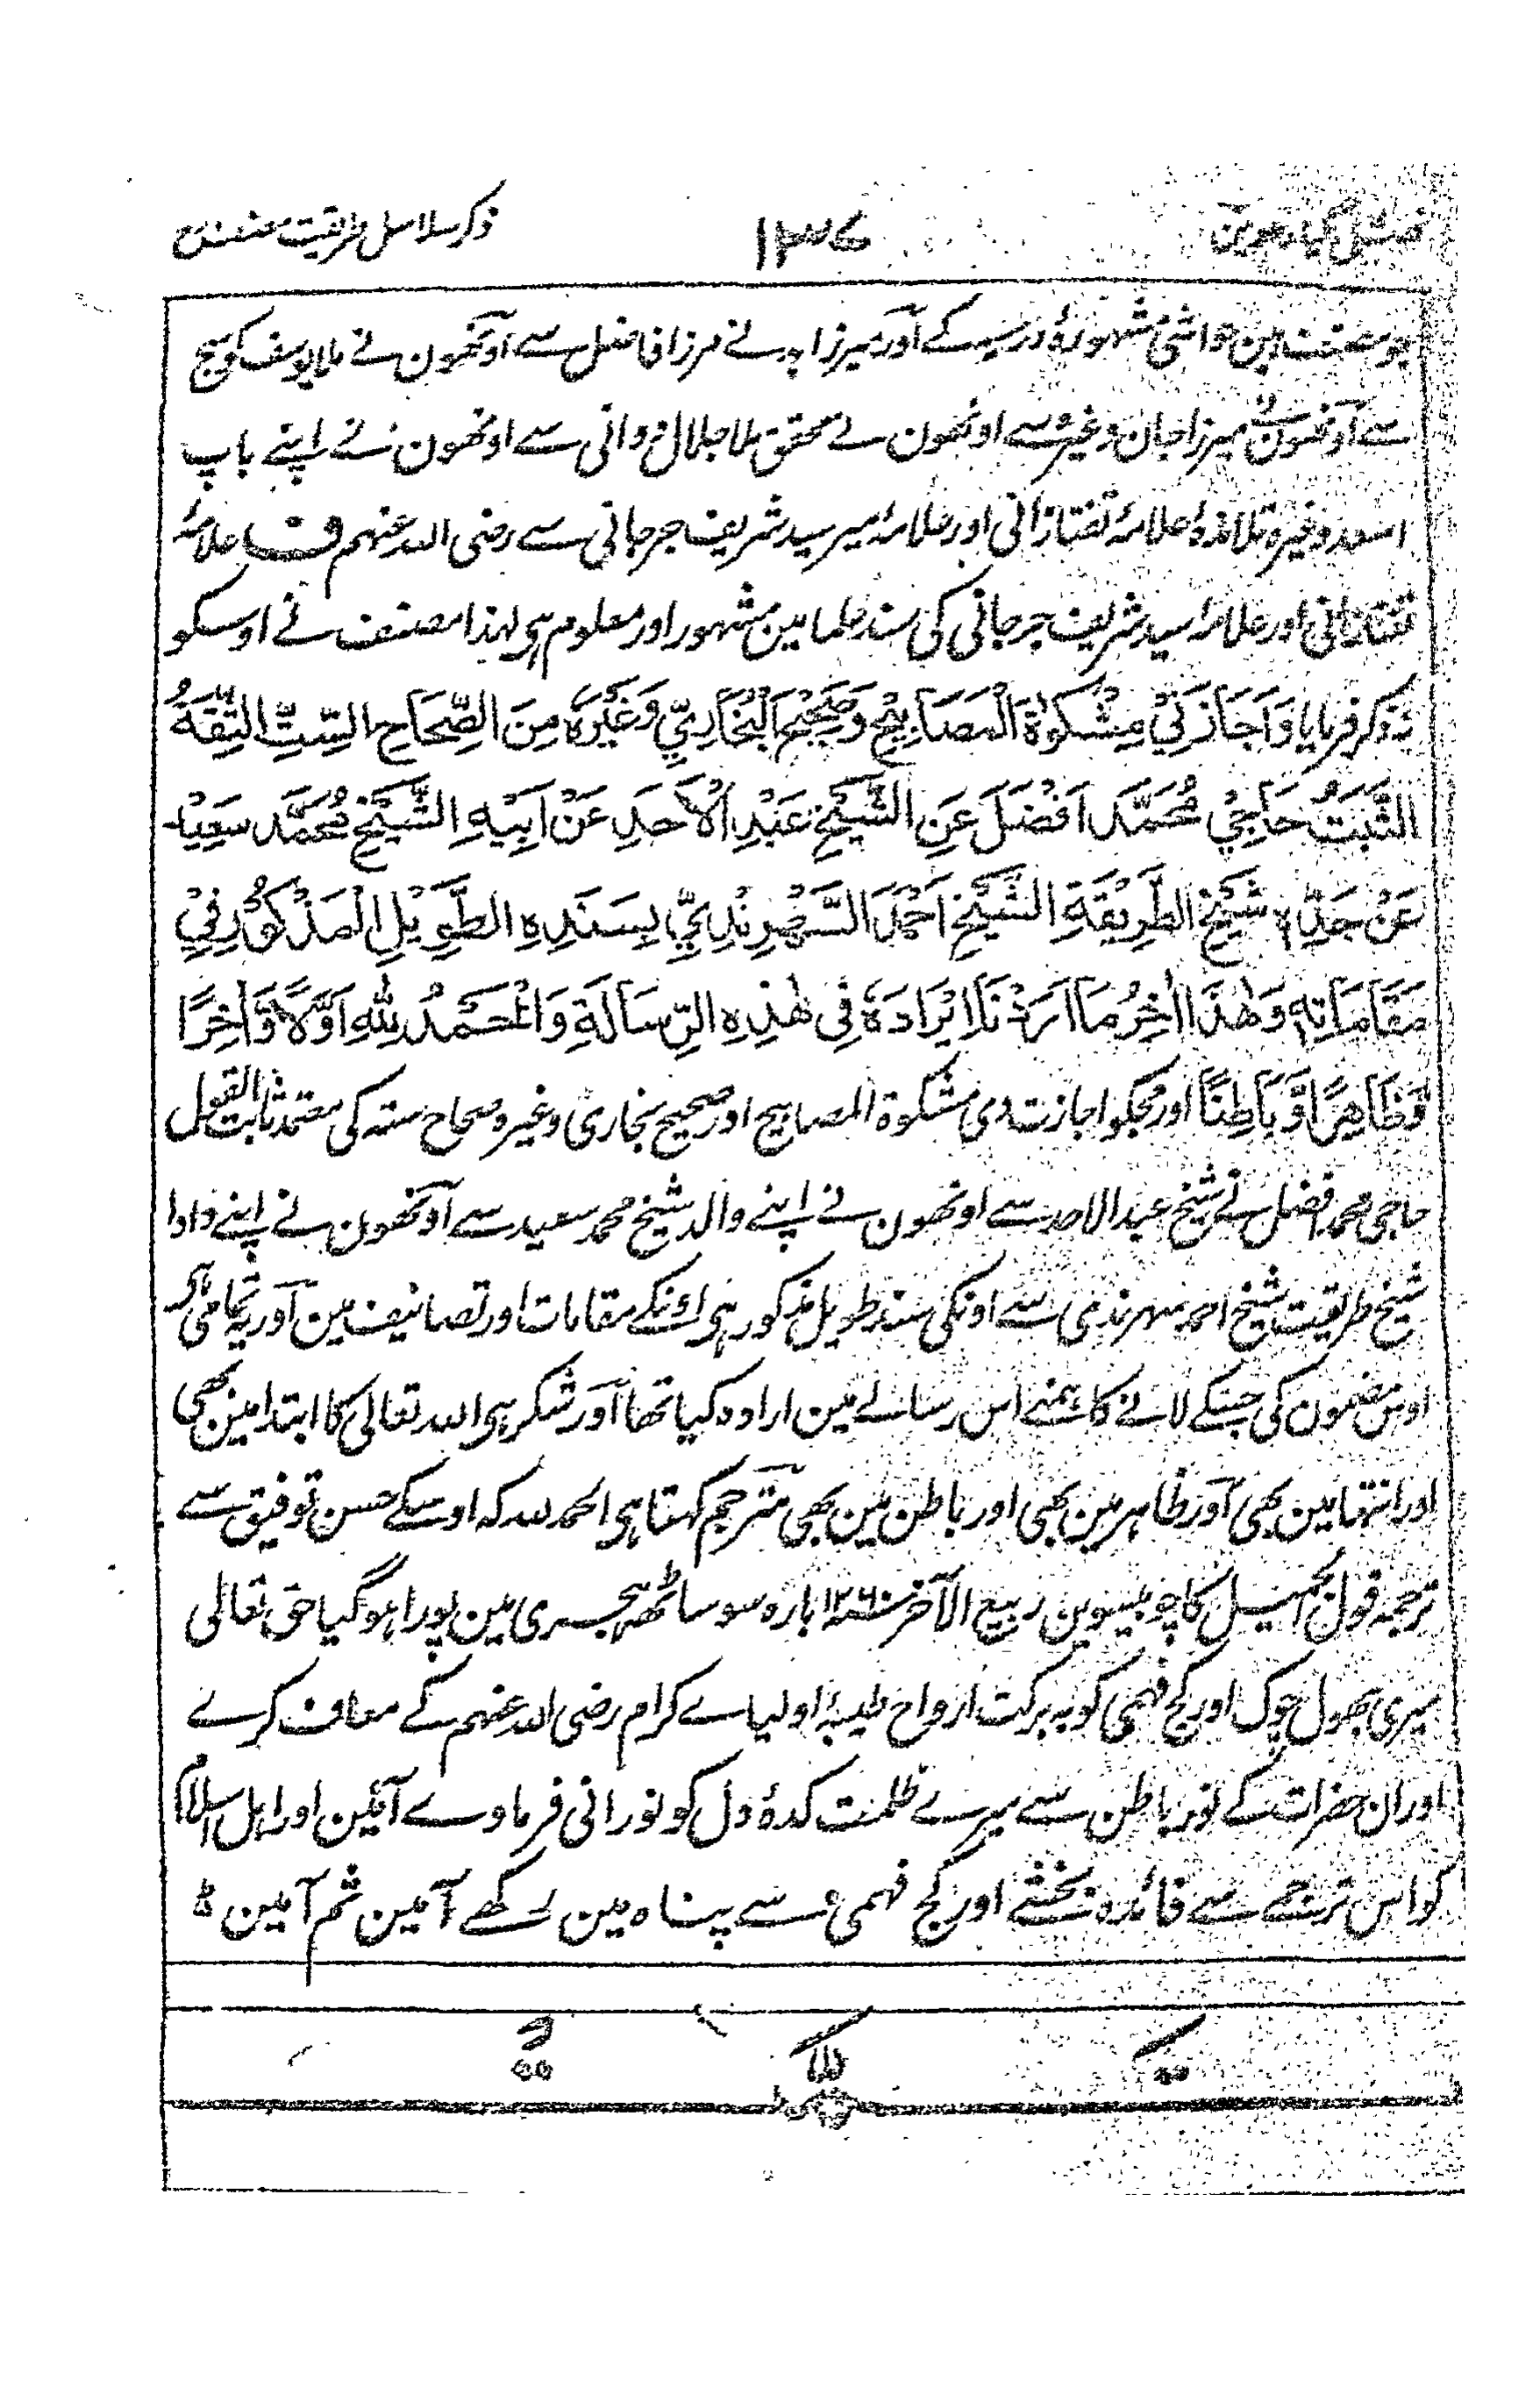 فصل گیارھوین ۱۳۷ ذکر سلاسل طریقت مصنف رح
مصنف ہین حواشی مشہورۂ درسیہ کے اور میرزاہد نے مرزا فاضل سے اونھون نے ملا یوسف کوسج
سے اونھون نے میرزا جان وغیرہ سے اونھون نے محقق ملا جلال دوانی سے اونھون نے اپنے باپ
اسعد وغیرہ تلامذۂ علامۂ تفتازانی اور علامہ میر سید شریف جرجانی سے رضی اللہ عنہم ف علامۂ
تفتازانی اور علامہ سید شریف جرجانی کی سند علما مین مشہور اور معلوم ہی لہذا مصنف نے اوسکو
نہ ذکر فرمایا وَاَجَازَ لِيْ مِشْكٰوةَ الْمَصَابِيْحِ وَصَحِيْحَ الْبُخَارِيِّ وَغَيْرَهٗ مِنَ الصِّحَاحِ السِّتِّ الثِّقَةُ
الثَّبَتُ حَاجِيْ مُحَمَّدْ اَفْضَلْ عَنِ الشَّيْخِ عَبْدِ الْاَحَدِ عَنْ اَبِيْهِ الشَّيْخِ مُحَمَّدْ سَعِيْد
عَنْ جَدِّهٖ شَيْخِ الطَّرِيْقَةِ الشَّيْخِ اَحْمَدَ السَّهْرِنْدِيِّ بِسَنَدِهِ الطَّوِيْلِ الْمَذْكُوْرِ فِيْ
مَقَامَاتِهٖ وَهٰذَا اٰخِرُ مَا اَرَدْنَا اِيْرَادَهٗ فِيْ هٰذِهِ الرِّسَالَةِ وَالْحَمْدُ لِلّٰهِ اَوَّلًا وَّاٰخِرًا
وَّظَاهِرًا وَّبَاطِنًا اور مجکو اجازت دی مشکوۃ المصابیح اور صحیح بخاری وغیرہ صحاح ستہ کی معتمد ثابت القول
حاجی محمد افضل نے شیخ عبد الاحد سے اونھون نے اپنے والد شیخ محمد سعید سے اونھون نے اپنے دادا
شیخ طریقت شیخ احمد سہرندی سے اونکی سند طویل مذکور ہی انکے مقامات اور تصانیف مین اور یہ تمامی ہی
اوس مضمون کی جسکے لانے کا ہمنے اس رسالے مین ارادہ کیا تھا اور شکر ہی اللہ تعالی کا ابتدا مین بھی
اور انتہا مین بھی اور ظاہر مین بھی اور باطن مین بھی مترجم کہتا ہی الحمد للہ کہ اوسکے حسن توفیق سے
ترجمہ قول الجمیل کا چوبیسوین ربیع الآخر سنہ ۱۲۶۰ بارہ سو ساٹھ ہجری مین پورا ہو گیا حق تعالی
میری بھول چوک اور کج فہمی کو بہ برکت ارواح طیبۂ اولیاے کرام رضی اللہ عنہم کے معاف کرے
اور ان حضرات کے نور باطن سے میرے ظلمت کدۂ دل کو نورانی فرماوے آمین اور اہل اسلام
کو اس ترجمے سے فائدہ بخشے اور کج فہمی سے پناہ مین رکھے آمین ثم آمین